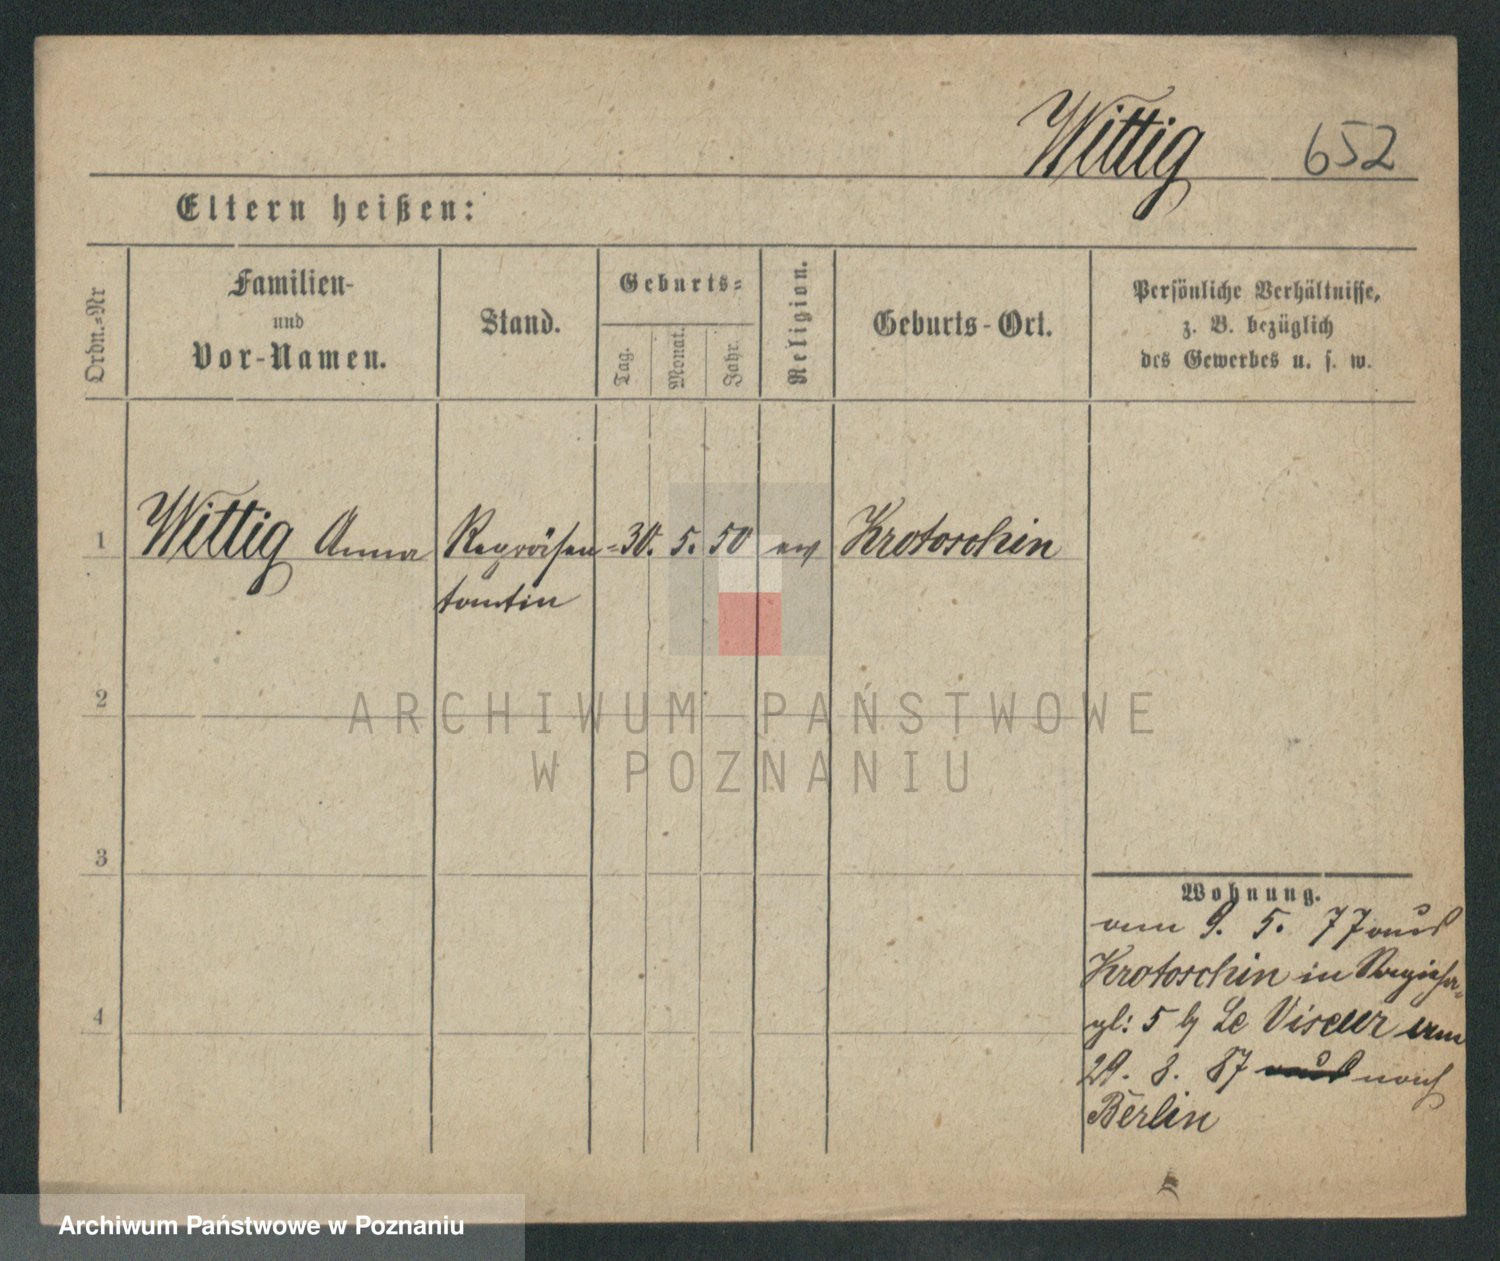 Wittig 652
Eltern heißen:
Ordn.=Nr
Familien-
und
Vor-Namen.
Stand.
Geburts=
Tag.
Monat.
Jahr.
Religion.
Geburts-Ort.
Persönliche Verhältnisse,
z. B. bezüglich
des Gewerbes u. s. w.
1 Wittig Anna Repräsen= 30. 5. 50 ev Krotoschin
tantin
2
ARCHIWUM PAŃSTWOWE
W POZNANIU
3
Wohnung.
am 9. 5. 77 aus
Krotoschin in
4
5 b Le Viseur am
29. 8. 87 nach
Berlin
Archiwum Państwowe w Poznaniu